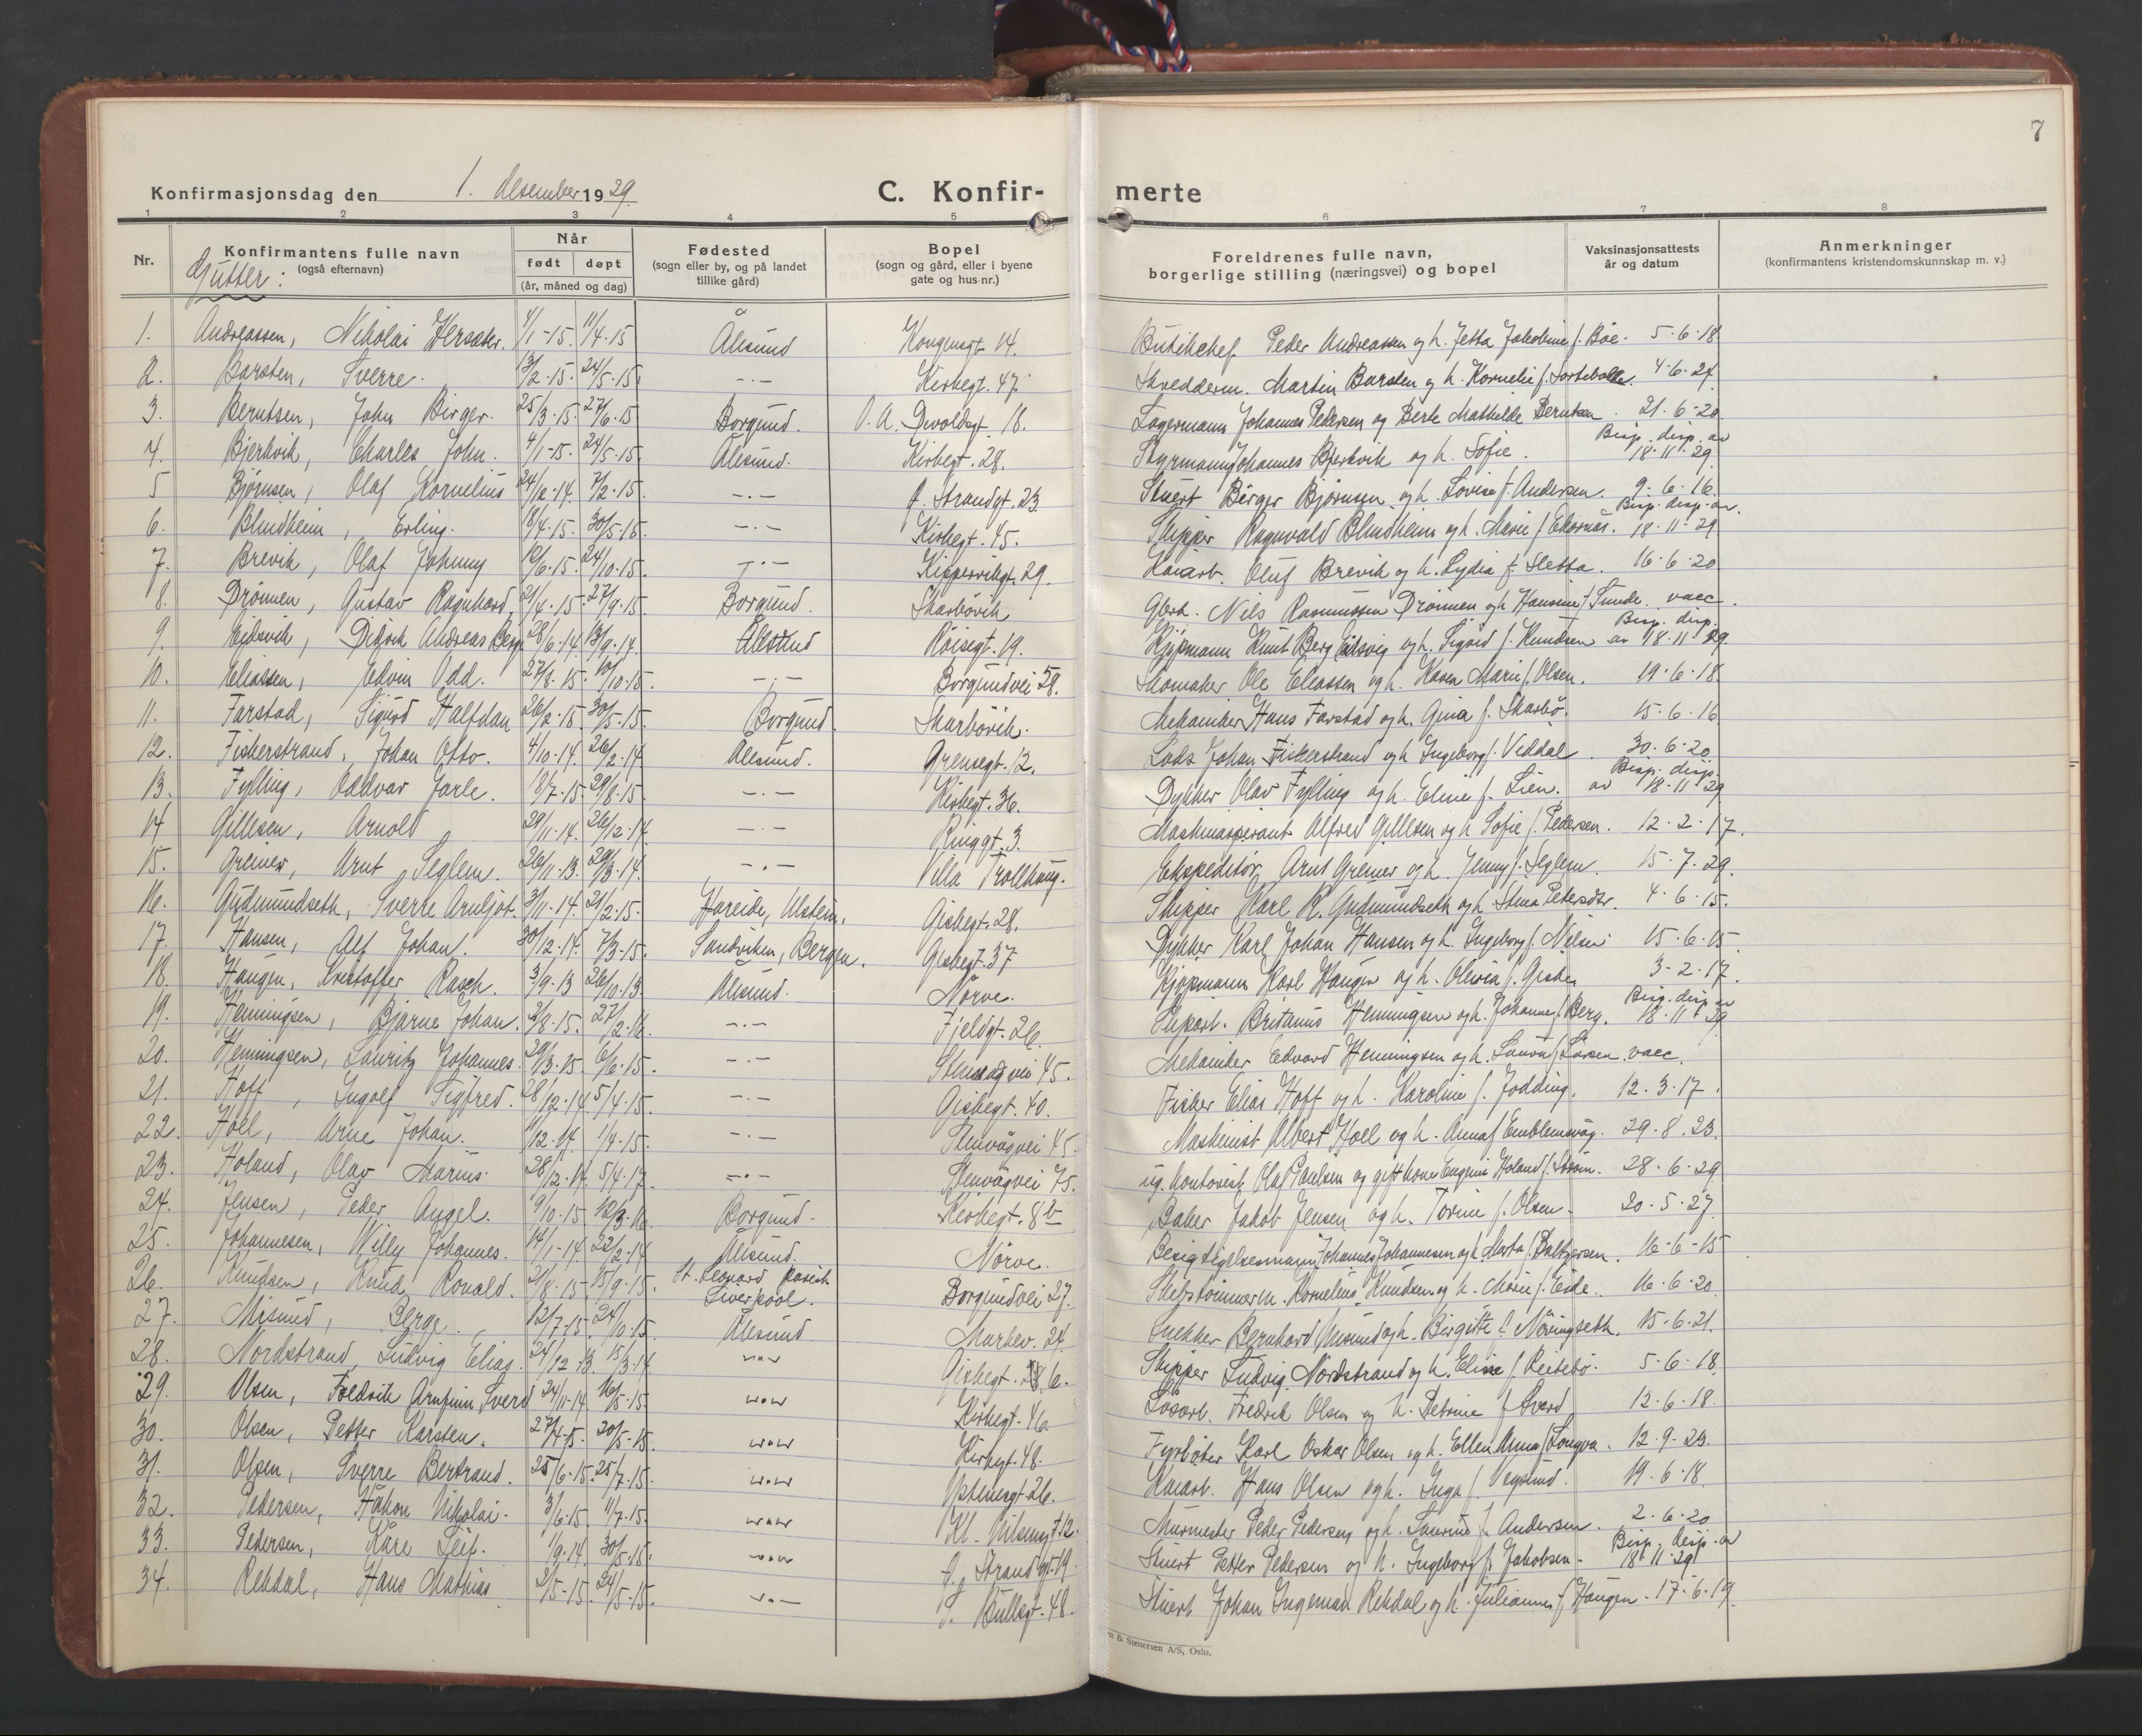 7
Konfirmasjonsdag den 1. desember 1929.
C. Konfir- merte
1 2 3 4 5 6 7 8
Nr. Konfirmantens fulle navn (også efternavn) Når født døpt (år, måned og dag) Fødested (sogn eller by, og på landet tillike gård) Bopel (sogn og gård, eller i byene gate og hus-nr.) Foreldrenes fulle navn, borgerlige stilling (næringsvei) og bopel Vaksinasjonsattests år og datum Anmerkninger (konfirmantens kristendomskunnskap m. v.)
Gutter:
1. Andreassen, Nikolai 4/1-15. 11/4-15 Ålesund Kongensgt. 14. Butikchef Peder Andreassen og h. Jetta Jakobine f. Bøe. 5-6-18.
2. Barsten, Sverre. 13/2-15. 24/5-15. -.- Kirkegt. 47. Skredderm. Martin Barsten og h. Kornelie f. 4-6-24.
3. Berntsen, John Birger. 25/3-15. 27/6-15 Borgund. O. A. Devoldsgt. 18. Lagermann Johannes Pedersen og Berte Mathilde Berntsen. 21-6-20.
4. Bjerkvik, Charles John. 4/1-15. 24/5-15. Ålesund. Kirkegt. 28. Styrmann Johannes Bjerkvik og h. Sofie. Bisp. disp. av 18-11-29.
5 Bjørnsen, Olaf Kornelius 24/12-14. 7/2-15. -.- Ø. Strandgt. 23. Stuert Birger Bjørnsen og h. Lovise f. Andersen. 9-6-16.
6. Blindheim, Erling. 18/4-15. 30/5-15. -.- Kirkegt. 45. Skipper Ragnvald Blindheim og h. Marie f. Ekornås. Bisp. disp. av. 18-11-29
7. Brevik, Olaf Johnny 12/6-15. 24/10-15. -.- Kipperviksgt. 29. Kaiarb. Oluf Brevik og h. Lydia f. Sletta. 16-6-20
8. Drønnen, Gustav Ragnhard, 21/4-15. 27/9-15. Borgund. Skarbøvik Gbrk. Nils Rasmussen Drønnen og h. Hansine f. Sunde. vacc.
9. Eidsvik, Didrik Andreas Berg 28/6-14. 13/9-14. Ålesund Røisegt. 19. Kjøpmann Knut Berg Eidsvig og h. Sigrid f. Knudsen Bisp. disp. av 18-11-29.
10. Eliassen, Edvin Odd. 27/8-15. 10/10-15. -.- Borgundvei 58. Skomaker Ole Eliassen og h. Karen Marie f. Olsen. 19-6-18.
11. Farstad, Sigurd Halfdan 26/2-15. 30/5-15. Borgund. Skarbøvik. Mekaniker Hans Farstad og h. Gina f. Skarbø. 15-6-16
12. Fiskerstrand, Johan Otto. 4/10-14. 26/12-14 Ålesund. Grensegt. 12. Lods Johan Fiskerstrand og h. Ingeborg f. Viddal. 30-6-20
13. Fylling, Oddvar Jarle. 18/7-15. 29/8-15. -.- Kirkegt. 36. Dykker Olav Fylling og h. Eline f. Lien. Bisp. disp. av 18-11-29
14 Gillesen, Arnold 29/11-14. 26/12-14. -.- Ringgt. 3. Maskinaspirant Alfred Gillesen og h. Sofie f. Pedersen. 12-2-17.
15. Greiner, Arnt Seglem. 26/11-13. 29/3-14. -.- Villa Trollhaug. Ekspeditør Arnt Greiner og h. Jenny f. Seglem. 15-7-29.
16. Gudmundseth, Sverre Arnljot. 3/11-14. 21/2-15. Hareide, Ulstein. Giskegt. 28. Skipper Karl K. Gudmundseth og h. Stina Petersdtr. 4-6-15.
17. Hansen, Alf Johan. 30/12-14. 7/3-15. Sandviken, Bergen. Giskegt. 37 Dykker Karl Johan Hansen og h. Ingeborg f. Nilsen. 15-6-15.
18. Haugen, Kristoffer Rasch. 3/9-13 26/10-13 Ålesund. Nørve. Kjøpmann Karl Haugen og h. Olivia f. Giske. 3-2-17.
19. Henningsen, Bjarne Johan. 2/8-15. 27/2-16. -.- Fjeldgt. 26. Britanus Henningsen og h. Johanne f. Berg. Bisp. disp av 18-11-29
20. Henningsen, Lauritz Johannes. 29/3-15. 6/6-15. -.- Stenvågvei 45. Mekaniker Edvard Henningsen og h. Laura f. Larsen. vacc.
21. Hoff, Ingolf Sigfred. 28/12-14. 5/4-15. -.- Giskegt. 40. Fisker Elias Hoff og h. Karoline f. Jodding. 12-3-17.
22. Hoel, Arne Johan. 11/12-14. 1/4-15. -.- Stenvågvei 45. Maskinist Albert Hoel og h. Anna f. Emblemsvåg. 29-8-23.
23. Holand, Olav Marius. 28/12-14. 5/4-17. -.- Stenvågvei 75. ug. kontorist Olaf Paulsen og gift kone Eugenie Holand f. 28-6-29.
24. Jensen, Peder Angel. 9/10-15. 12/3-16. Borgund. Kirkegt. 8b Baker Jakob Jensen og h. Torine f. Olsen. 20-5-27.
25. Johannesen, Willy Johannes. 14/1-14. 22/2-14 Ålesund. Nørve. Johannes Johannesen og h. Marta f. 16-6-15.
26. Knudsen, Knud Ronald. 21/8-15. 15/9-15. St. Leonard parish Liverpool. Borgundvei 27. Skibstømmerm. Kornelius Knudsen og h. Marie f. Eide. 16-6-20.
27. Misund, Børge. 12/7-15. 24/10-15. Ålesund. Murbrv. 24. Snekker Bernhard Misund og h. Birgitte f. Nøringseth. 15-6-21.
28. Nordstrand, Ludvig Elias. 24/12-13. 15/3-14 -"- Giskegt. 6. Skipper Ludvig Nordstrand og h. Eline f. Reitebø. 5-6-18.
29. Olsen, Fredrik Arnfinn Sverd 24/11-14 16/5-15. -"- Kirkegt. 46. Løsarb. Fredrik Olsen og h. Petrine f. Sverd. 12-6-18.
30. Olsen, Petter Karsten. 27/4-15. 20/5-15. -"- Kirkegt. 48. Fyrbøter Karl Oskar Olsen og h. Ellen Anna f. Longva. 12-9-23.
31. Olsen, Sverre Bertrand. 25/6-15. 25/7-15. -"- Østenesgt 26. Kaiarb. Hans Olsen og h. Inga f. Vegsund. 19-6-18.
32. Pedersen, Håkon Nikolai. 3/6-15. 11/7-15. -"- Kl. Nilsensgt 12. Murmester Peder Pedersen og h. Laurine f. Andersen. 2-6-20
33. Pedersen, Kåre Leif. 1/9-14. 30/5-15. -"- Ø. Strandgt. 19. Stuert Petter Pedersen og h. Ingeborg f. Jakobsen. Bisp. disp. av 18-11-29
34. Rekdal, Hans Mathias 2/5-15. 24/5-15. -.- S. Bullsgt. 48. Stuert Johan Ingeman Rekdal og h. Julianne f. Haugen. 17-6-19.
& Stenersen A/S, Oslo.